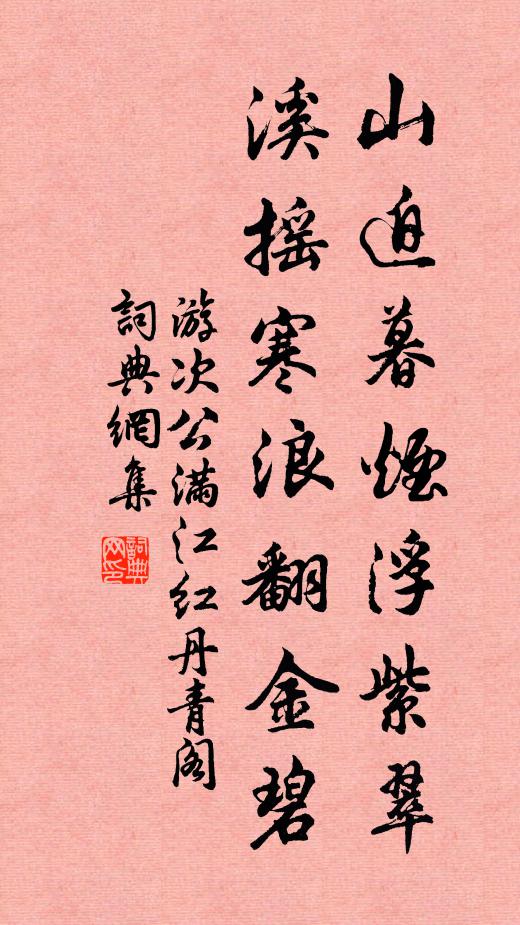 山迫暮煙浮紫翠
溪摇寒浪翻金碧
游次公满江红丹青阁
詞典網集
詞典网印